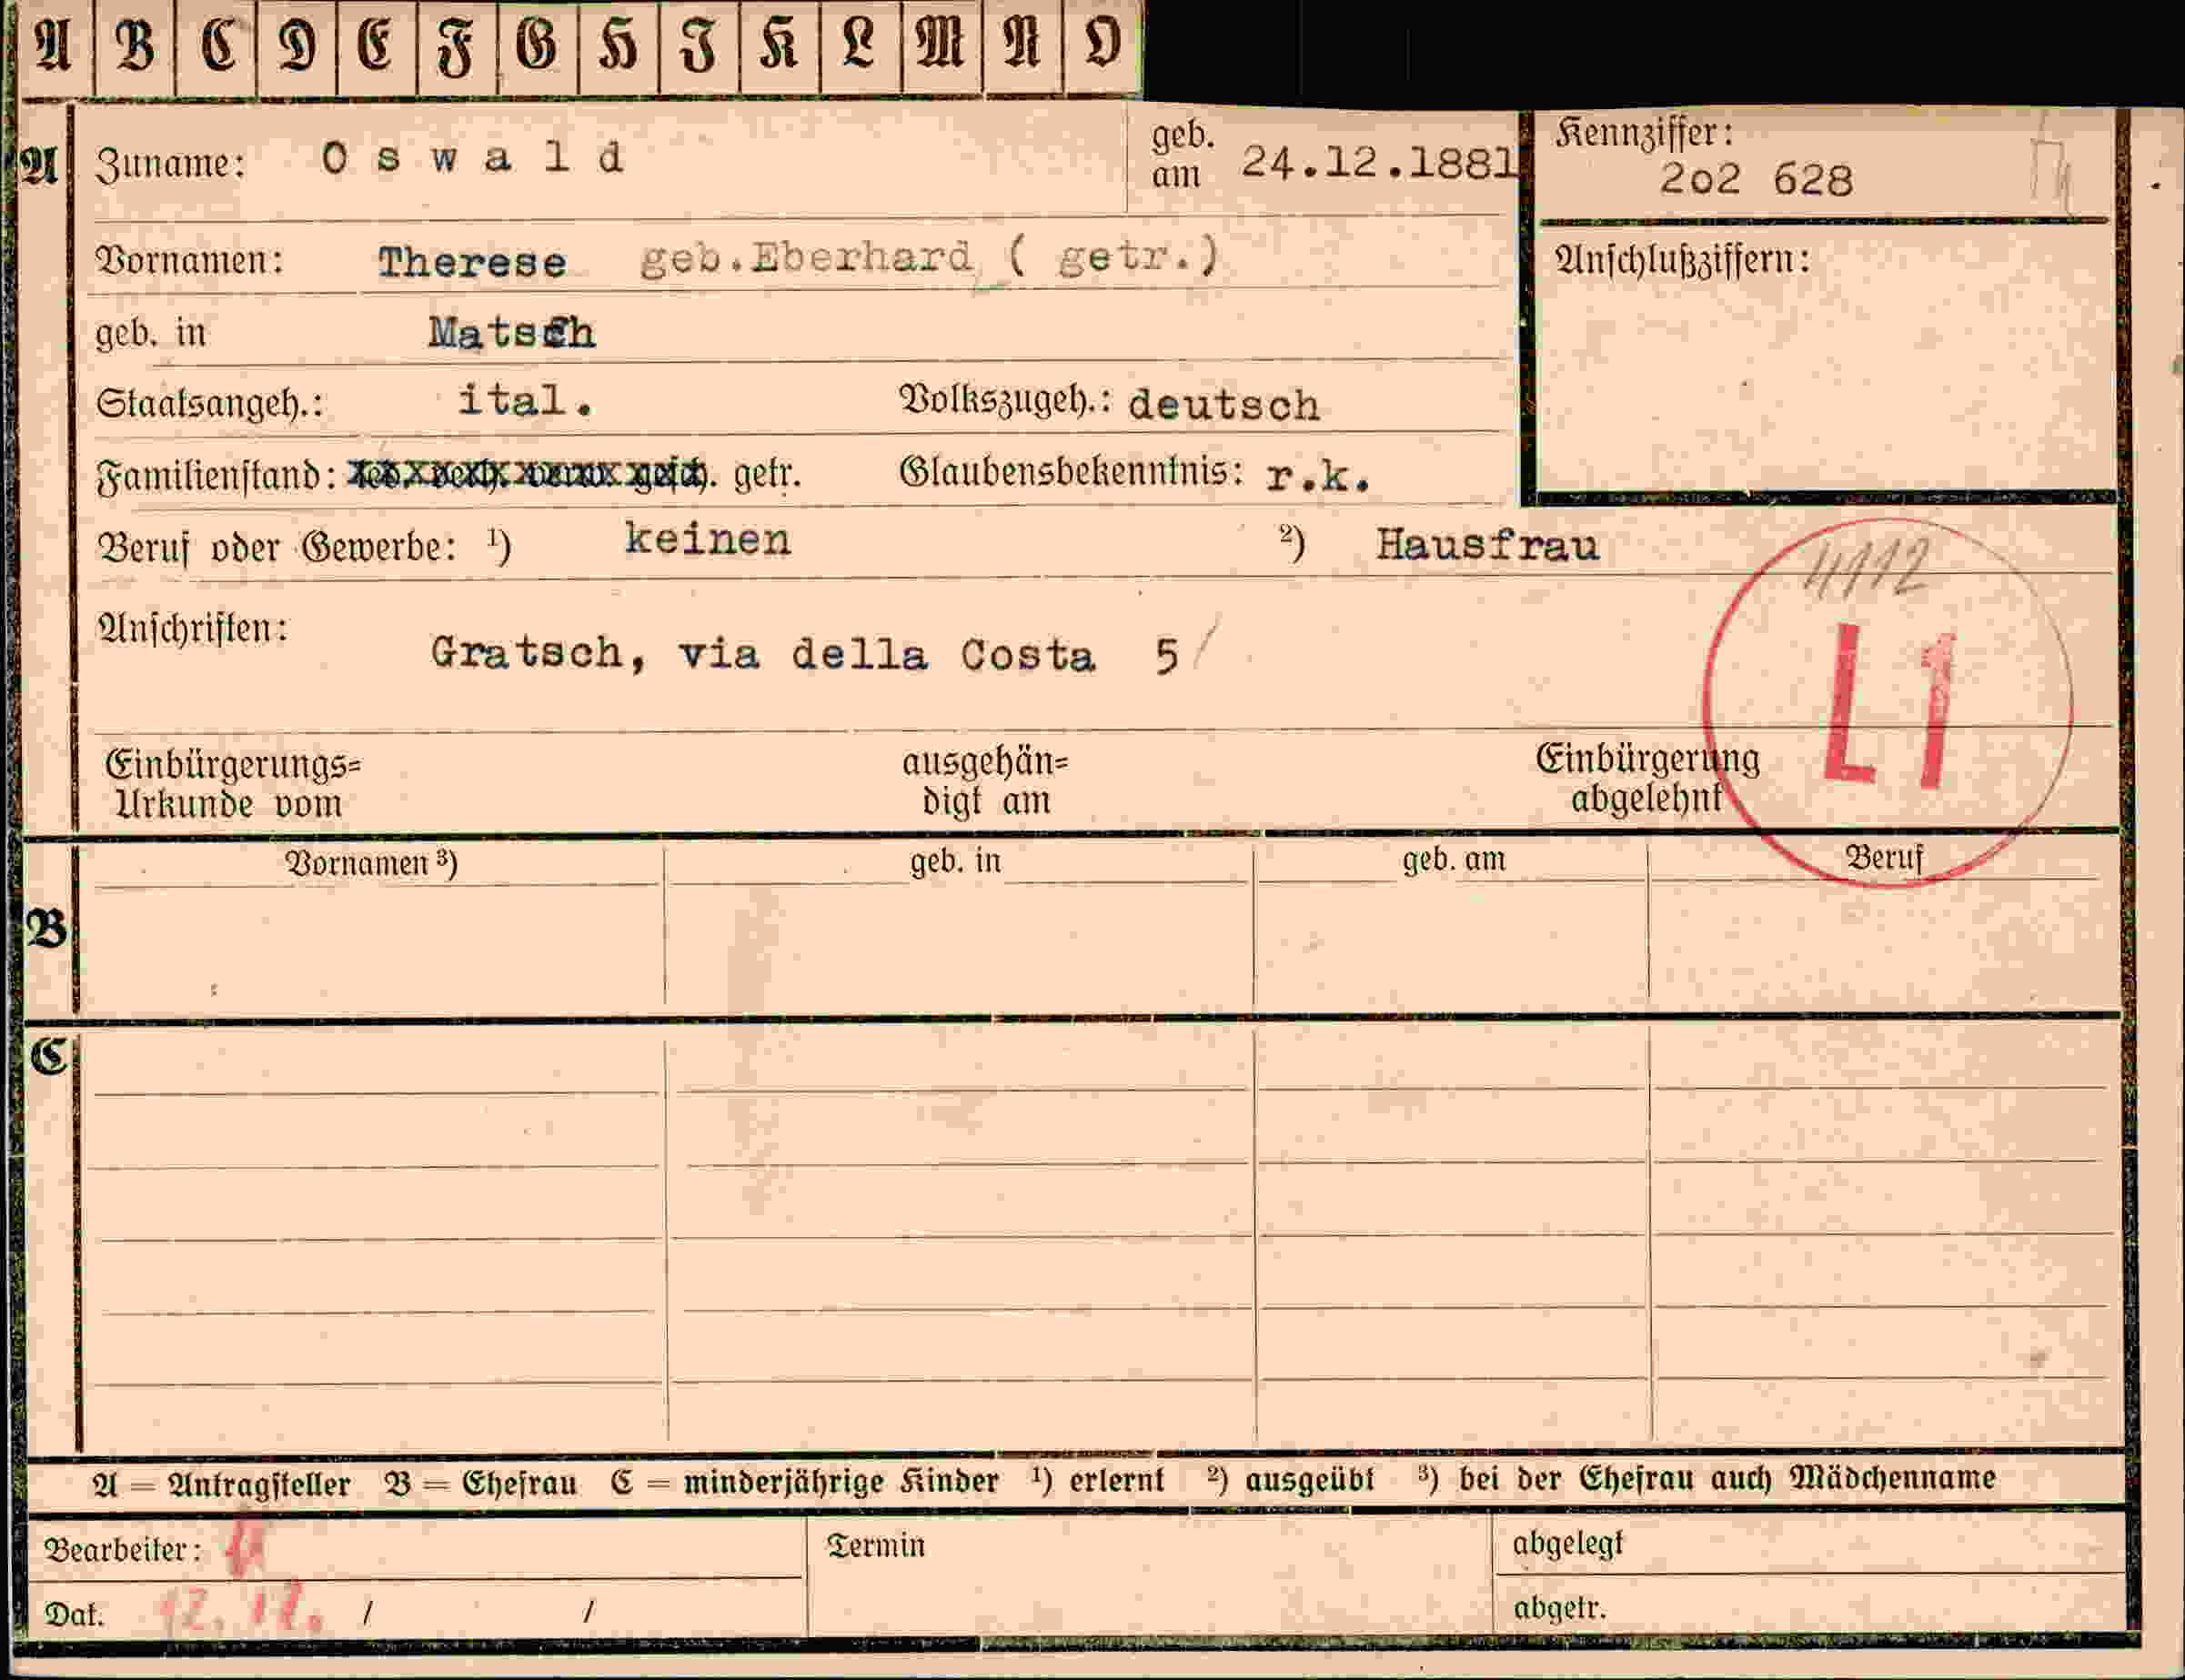 A B C D E F G H I K L M N O
A Zuname: Oswald geb. am 24.12.1881 Kennziffer: 2o2 628
Vornamen: Therese geb.Eberhard ( getr.) Anschlußziffern:
geb. in Matsch
Staatsangeh.: ital. Volkszugeh.: deutsch
Familienstand: gesch. getr. Glaubensbekenntnis: r.k.
Beruf oder Gewerbe: ¹) keinen ²) Hausfrau
4112
Anschriften: Gratsch, via della Costa 5
L1
Einbürgerungs= Urkunde vom ausgehän= digt am Einbürgerung abgelehnt
Vornamen ³) geb. in geb. am Beruf
B
C
A = Antragsteller B = Ehefrau C = minderjährige Kinder ¹) erlernt ²) ausgeübt ³) bei der Ehefrau auch Mädchenname
Bearbeiter: Termin abgelegt
Dat. 12.12. / / abgetr.